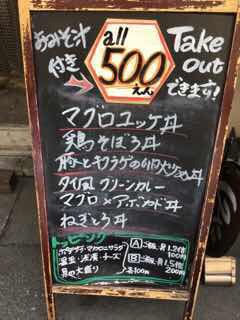 おみそ汁
付き
all
500
えん
Take
out
できます!
マグロユッケ丼
鶏そぼろ丼
豚とキクラゲの卵炒め丼
タイ風グリーンカレー
マグロ×アボカド丼
ねぎとろ丼
トッピング
ポテサラ・マカロニサラダ
・チーズ
大盛り
各100円
A ご飯 1.2倍
100円
B ご飯 1.5倍
200円